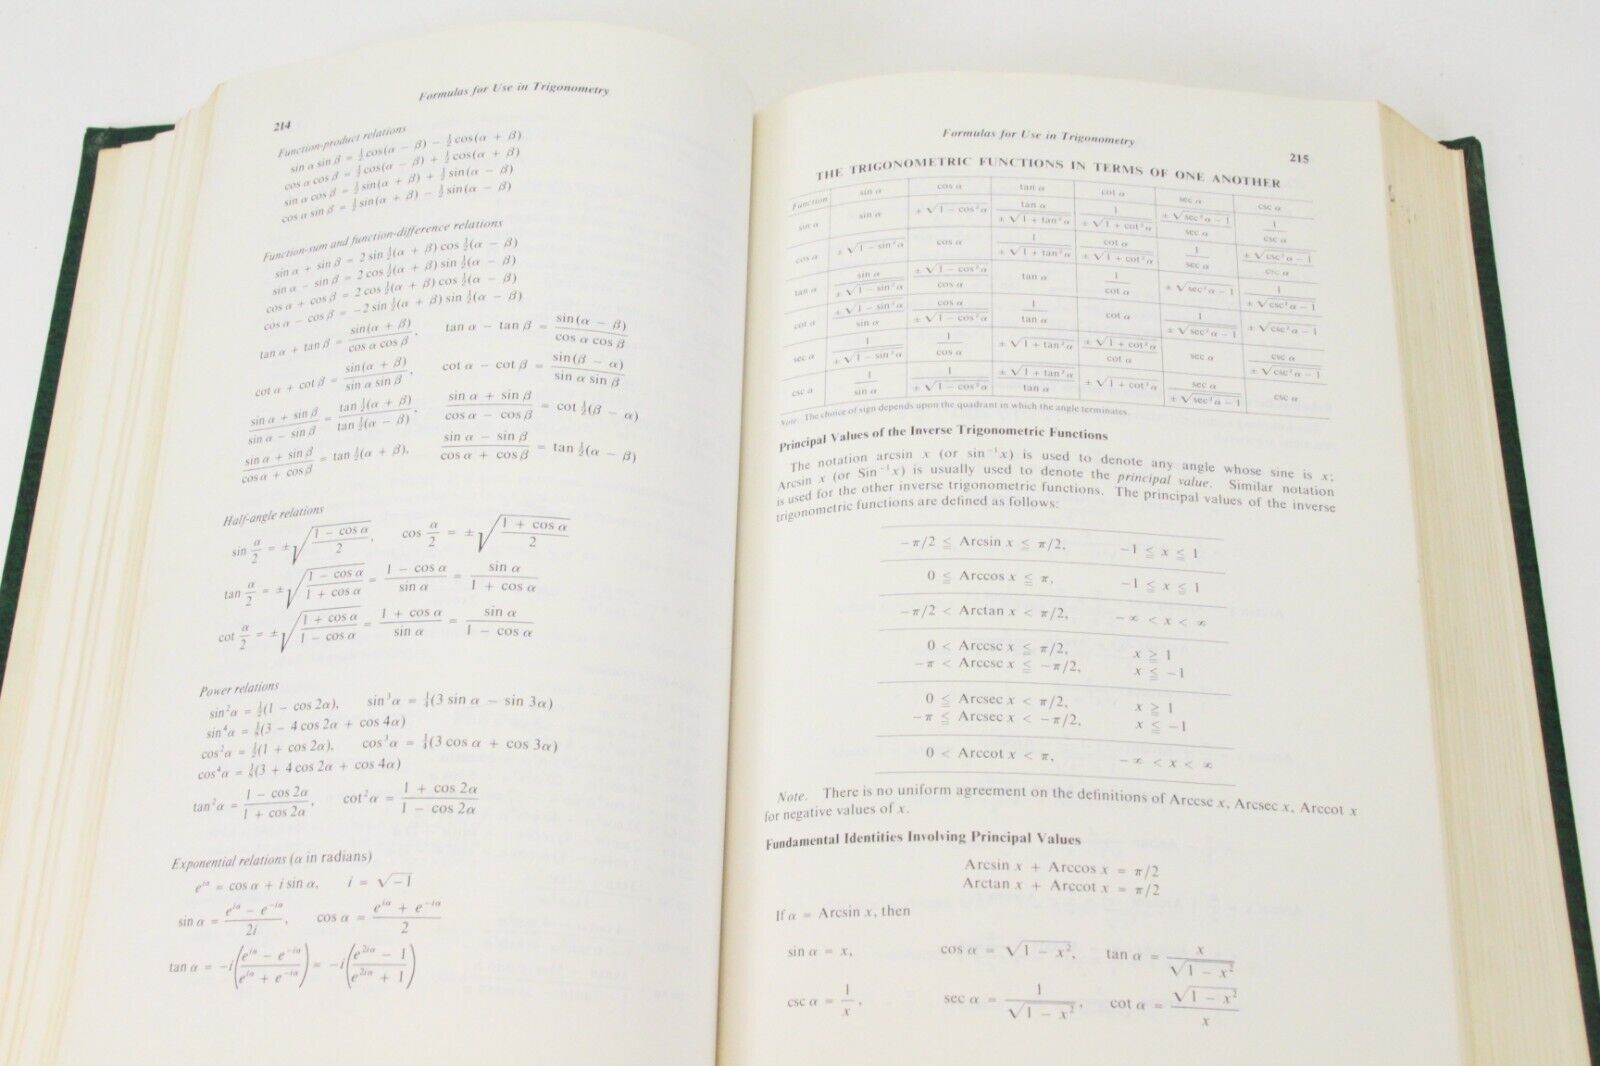 Formulas for Use in Trigonometry
214
Function-product relations
sin α sin β = ½cos(α − β) − ½cos(α + β)
cos α cos β = ½cos(α − β) + ½cos(α + β)
sin α cos β = ½sin(α + β) + ½sin(α − β)
cos α sin β = ½sin(α + β) − ½sin(α − β)
Function-sum and function-difference relations
sin α + sin β = 2 sin ½(α + β) cos ½(α − β)
sin α − sin β = 2 cos ½(α + β) sin ½(α − β)
cos α + cos β = 2 cos ½(α + β) cos ½(α − β)
cos α − cos β = −2 sin ½(α + β) sin ½(α − β)
tan α + tan β = sin(α + β)/(cos α cos β), tan α − tan β = sin(α − β)/(cos α cos β)
cot α + cot β = sin(α + β)/(sin α sin β), cot α − cot β = sin(β − α)/(sin α sin β)
(sin α + sin β)/(sin α − sin β) = tan ½(α + β)/tan ½(α − β), (sin α + sin β)/(cos α − cos β) = cot ½(β − α)
(sin α + sin β)/(cos α + cos β) = tan ½(α + β), (sin α − sin β)/(cos α + cos β) = tan ½(α − β)
Half-angle relations
sin α/2 = ±√((1 − cos α)/2), cos α/2 = ±√((1 + cos α)/2)
tan α/2 = ±√((1 − cos α)/(1 + cos α)) = (1 − cos α)/sin α = sin α/(1 + cos α)
cot α/2 = ±√((1 + cos α)/(1 − cos α)) = (1 + cos α)/sin α = sin α/(1 − cos α)
Power relations
sin²α = ½(1 − cos 2α), sin³α = ¼(3 sin α − sin 3α)
sin⁴α = ⅛(3 − 4 cos 2α + cos 4α)
cos²α = ½(1 + cos 2α), cos³α = ¼(3 cos α + cos 3α)
cos⁴α = ⅛(3 + 4 cos 2α + cos 4α)
tan²α = (1 − cos 2α)/(1 + cos 2α), cot²α = (1 + cos 2α)/(1 − cos 2α)
Exponential relations (α in radians)
e^(iα) = cos α + i sin α, i = √−1
sin α = (e^(iα) − e^(−iα))/2i, cos α = (e^(iα) + e^(−iα))/2
tan α = −i((e^(iα) − e^(−iα))/(e^(iα) + e^(−iα))) = −i((e^(2iα) − 1)/(e^(2iα) + 1))
Formulas for Use in Trigonometry
215
THE TRIGONOMETRIC FUNCTIONS IN TERMS OF ONE ANOTHER
Function sin α cos α tan α cot α sec α csc α
sin α sin α ±√(1 − cos²α) tan α/±√(1 + tan²α) 1/±√(1 + cot²α) ±√(sec²α − 1)/sec α 1/csc α
cos α ±√(1 − sin²α) cos α 1/±√(1 + tan²α) cot α/±√(1 + cot²α) 1/sec α ±√(csc²α − 1)/csc α
tan α sin α/±√(1 − sin²α) ±√(1 − cos²α)/cos α tan α 1/cot α ±√(sec²α − 1) 1/±√(csc²α − 1)
cot α ±√(1 − sin²α)/sin α cos α/±√(1 − cos²α) 1/tan α cot α 1/±√(sec²α − 1) ±√(csc²α − 1)
sec α 1/±√(1 − sin²α) 1/cos α ±√(1 + tan²α) ±√(1 + cot²α)/cot α sec α csc α/±√(csc²α − 1)
csc α 1/sin α 1/±√(1 − cos²α) ±√(1 + tan²α)/tan α ±√(1 + cot²α) sec α/±√(sec²α − 1) csc α
Note. The choice of sign depends upon the quadrant in which the angle terminates.
Principal Values of the Inverse Trigonometric Functions
The notation arcsin x (or sin⁻¹x) is used to denote any angle whose sine is x;
Arcsin x (or Sin⁻¹x) is usually used to denote the principal value. Similar notation
is used for the other inverse trigonometric functions. The principal values of the inverse
trigonometric functions are defined as follows:
−π/2 ≦ Arcsin x ≦ π/2, −1 ≦ x ≦ 1
0 ≦ Arccos x ≦ π, −1 ≦ x ≦ 1
−π/2 < Arctan x < π/2, −∞ < x < ∞
0 < Arccsc x ≦ π/2, x ≧ 1
−π < Arccsc x ≦ −π/2, x ≦ −1
0 ≦ Arcsec x < π/2, x ≧ 1
−π ≦ Arcsec x < −π/2, x ≦ −1
0 < Arccot x < π, −∞ < x < ∞
Note. There is no uniform agreement on the definitions of Arccsc x, Arcsec x, Arccot x
for negative values of x.
Fundamental Identities Involving Principal Values
Arcsin x + Arccos x = π/2
Arctan x + Arccot x = π/2
If α = Arcsin x, then
sin α = x, cos α = √(1 − x²), tan α = x/√(1 − x²)
csc α = 1/x, sec α = 1/√(1 − x²), cot α = √(1 − x²)/x